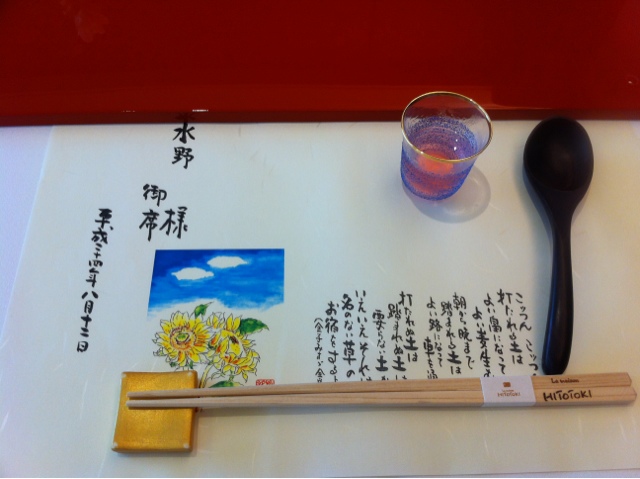 水野 様
御席
平成二十四年八月十二日
こっつん こっつ
打たれる土は
よい畠になって
よい麦生
朝から晩まで
踏まれる土は
よい路になって
車を
打たれぬ土は
踏まれぬ土は
要らない土
いえいえそれは
名のない草の
お宿をする
(金子みすゞ全
La maison
HITOTOKI